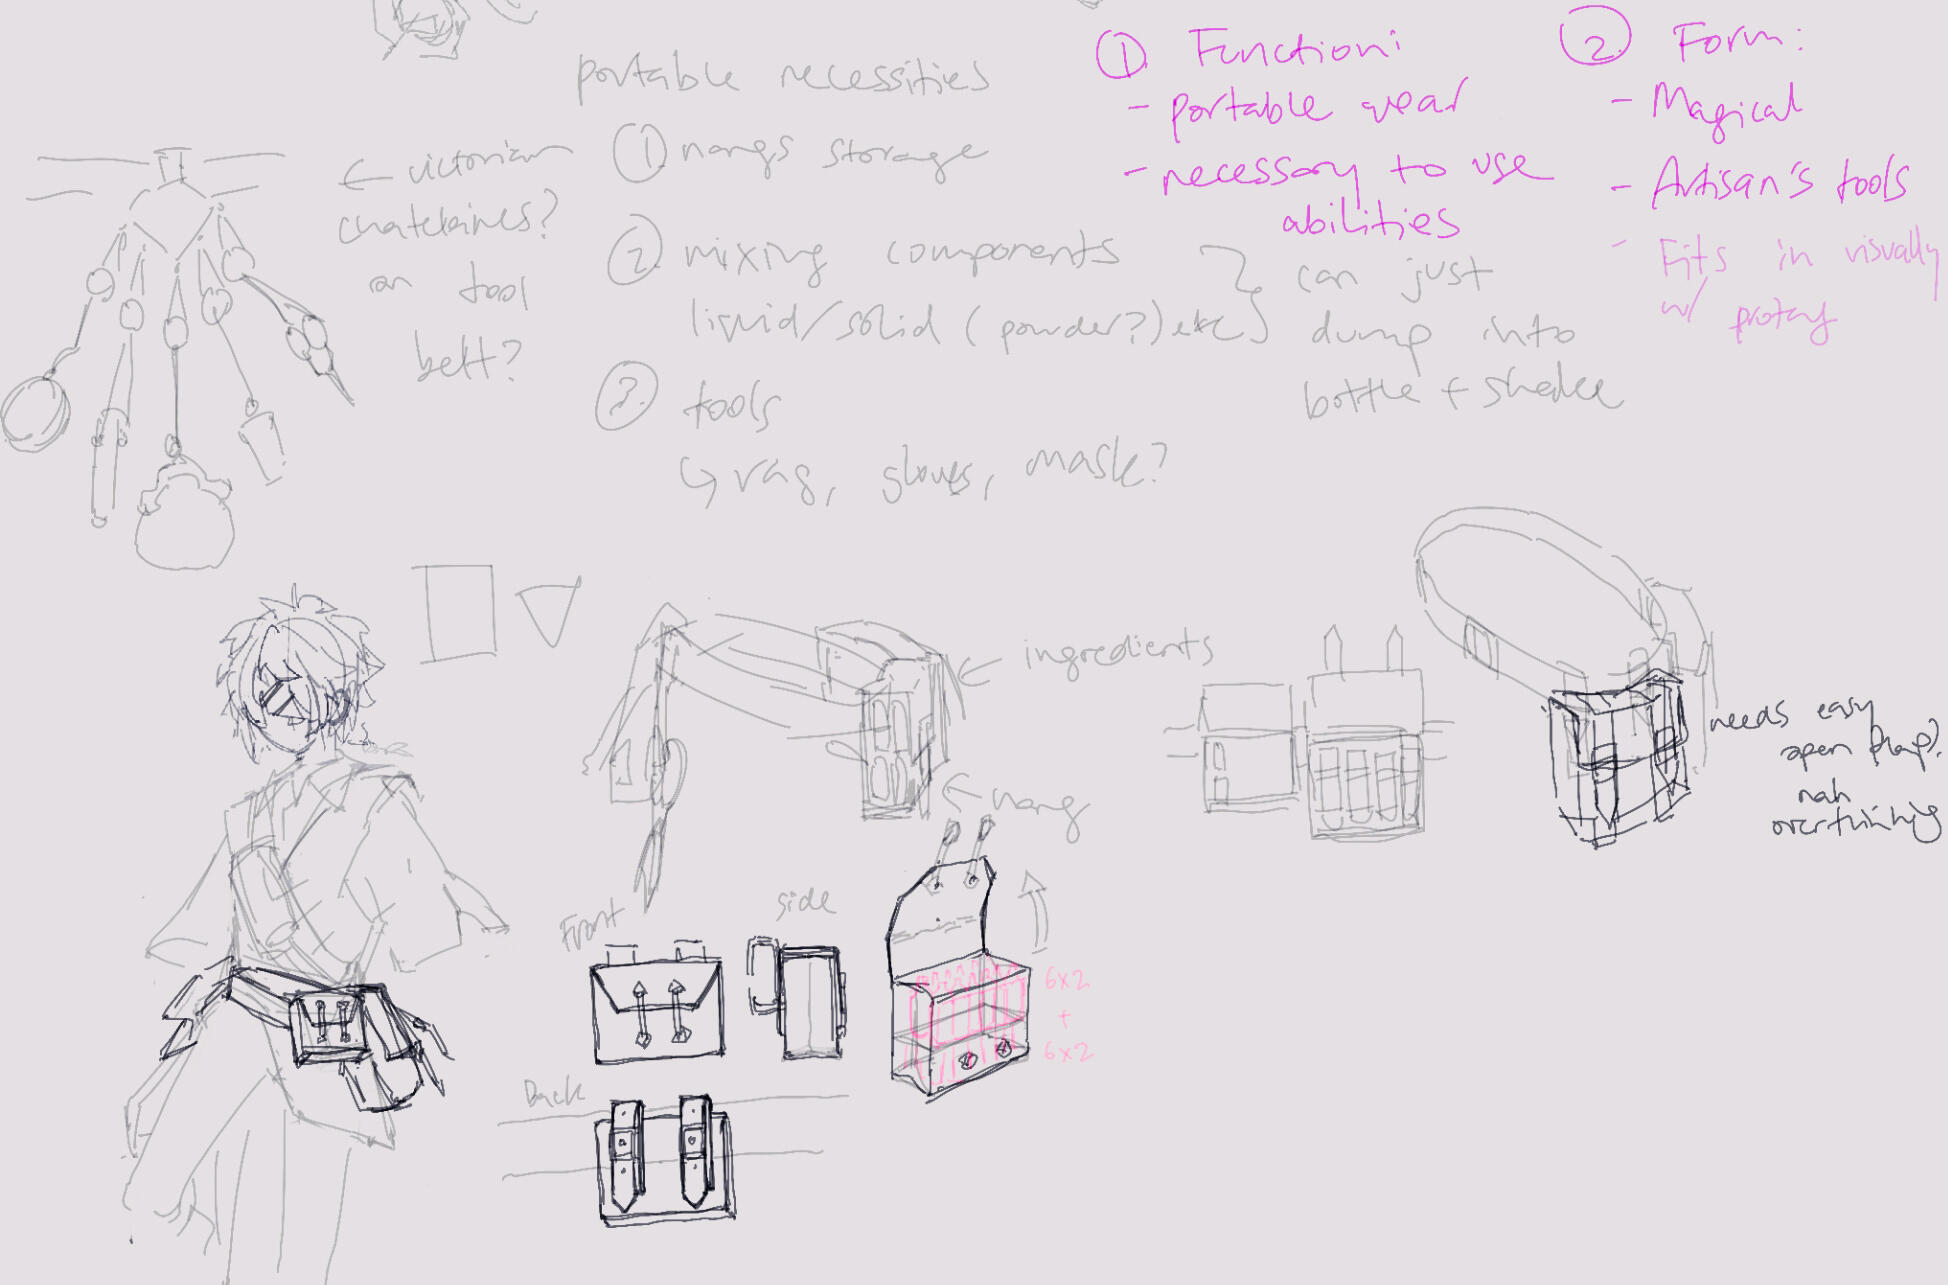 portable necessities
① nangs storage
② mixing components
liquid/solid (powder?) etc
can just
dump into
bottle + shake
③ tools
↳ rag, gloves, mask?
← victorian
chatelaines?
on tool
belt?
① Function:
- portable wear
- necessary to use
abilities
② Form:
- Magical
- Artisan's tools
- Fits in visually
w/ protag
← ingredients
← nang
needs easy
open flap?
nah
overthinking
Front
side
Back
6x2
+
6x2